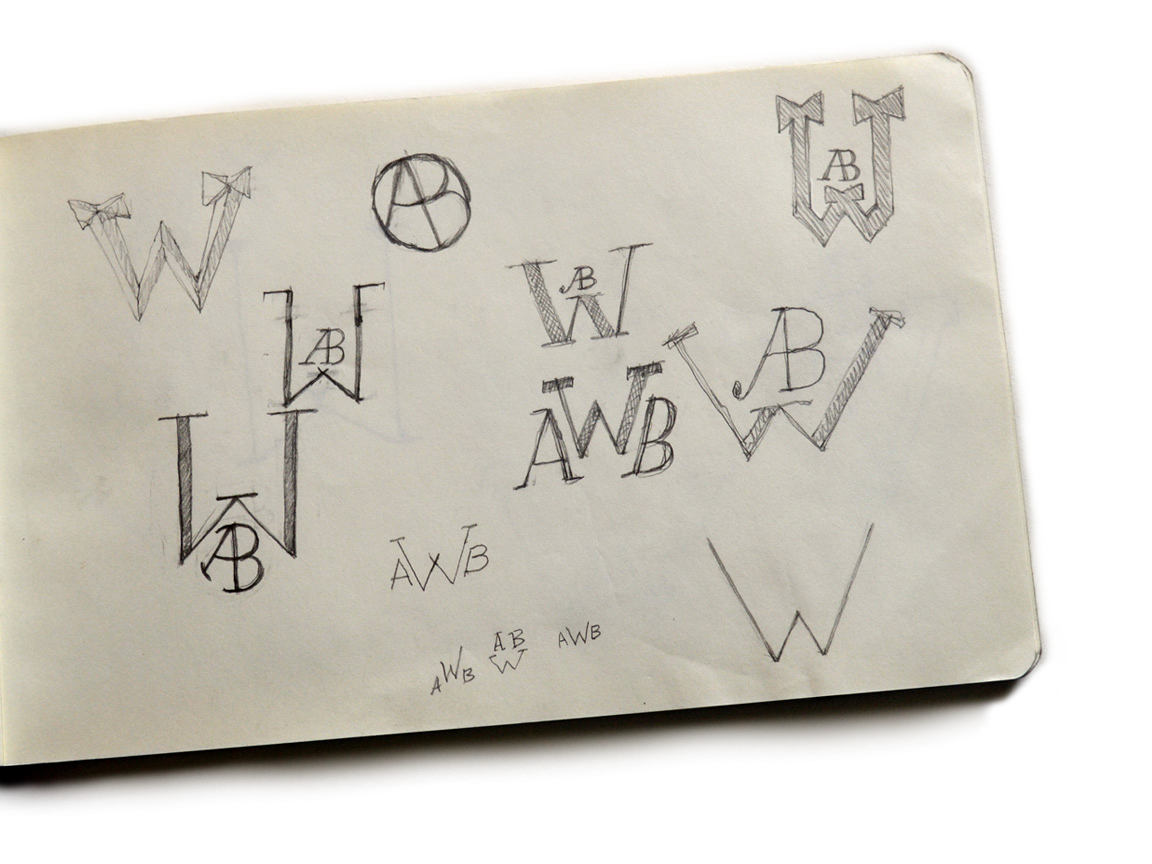 W
AB
AB
W
AB
W
AB
W
AB
W
AWB
AB
W
AB
W
AWB
W
AWB
AB
W
AWB